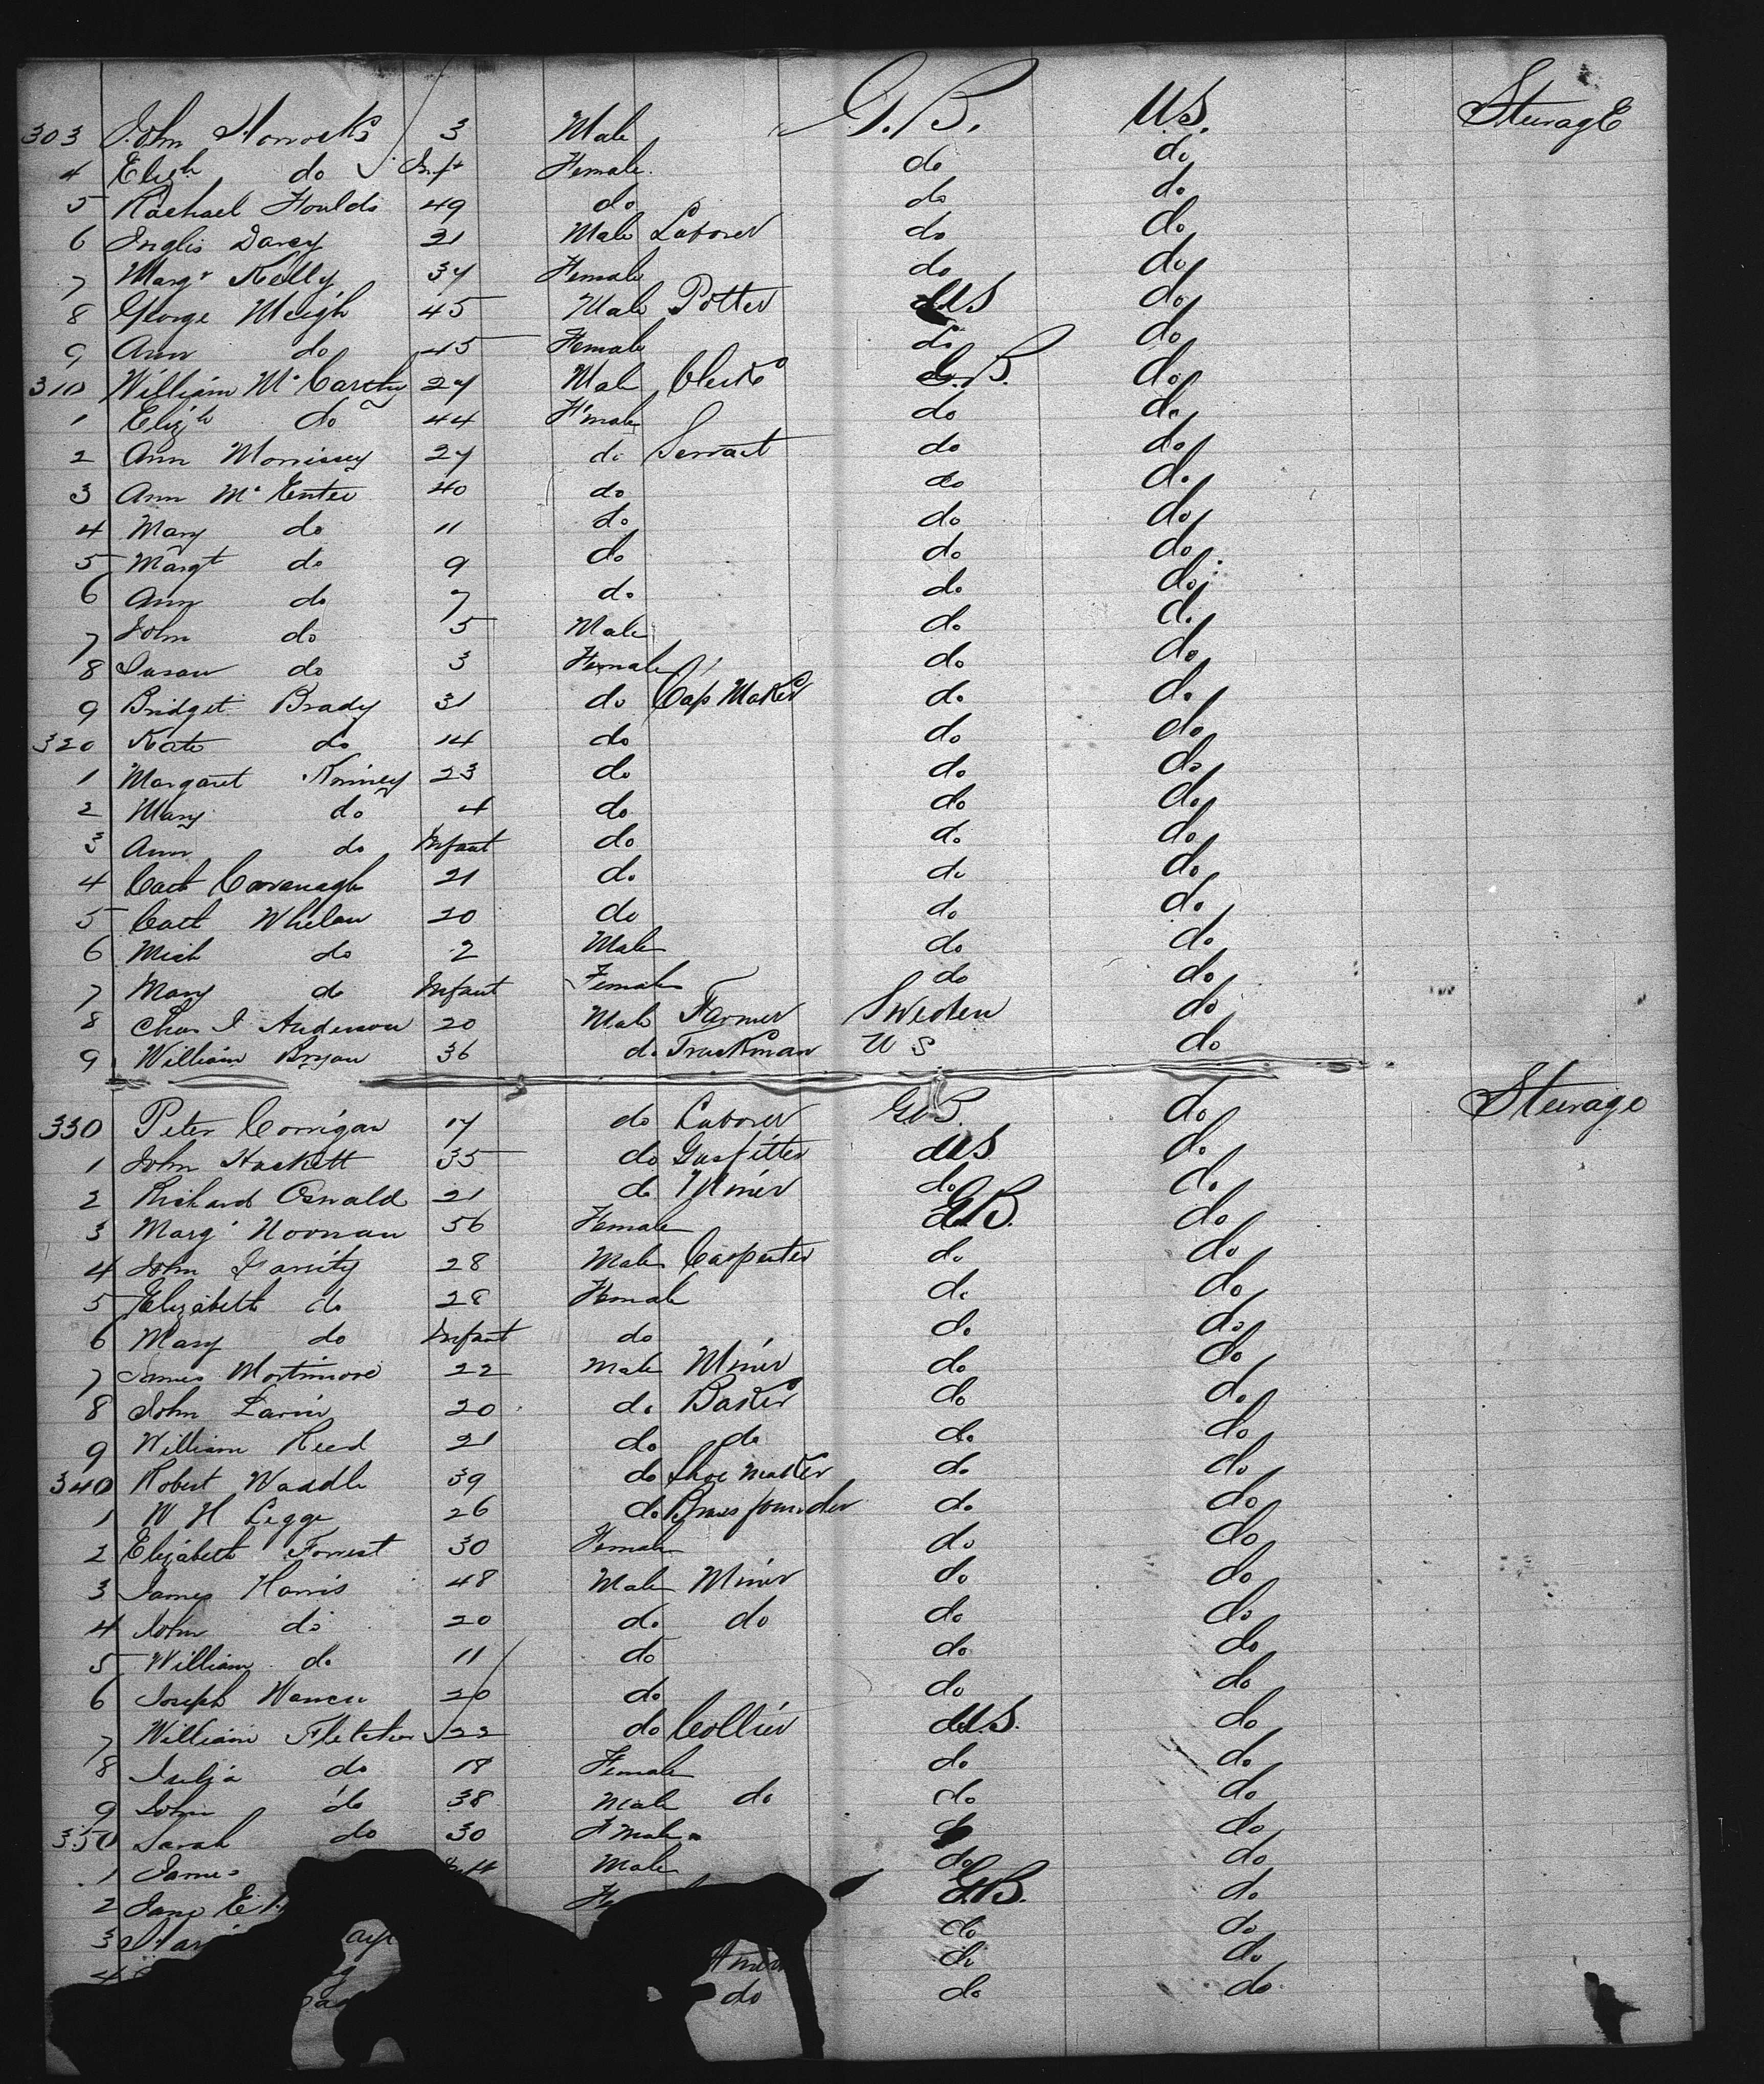 303 John Horrocks 3 Male G.B. U.S. SteeragE
4 Eliz.h do Inft Female do do
5 Rachael Foulds 49 do do do
6 Inglis Darcy 21 Male Laborer do do
7 Margt Kelly 34 Female do do
8 George Meigh 45 Male Potter US do
9 Ann do 45 Female do do
310 William McCarthy 24 Male Clerk G.B. do
1 Elizth do 44 Female do do
2 Ann Morrissey 24 do Servant do do
3 Ann McEntee 40 do do do
4 Mary do 11 do do do
5 Margt do 9 do do do
6 Ann do 7 do do do
7 John do 5 Male do do
8 Susan do 3 Female do do
9 Bridget Brady 31 do Cap Maker do do
320 Kate do 14 do do do
1 Margaret Kinney 23 do do do
2 Mary do 4 do do do
3 Ann do Infant do do do
4 Cath Cavanagh 21 do do do
5 Cath Whelan 20 do do do
6 Mich do 2 Male do do
7 Mary do Infant Female do do
8 Chas I Anderson 20 Male Farmer Sweden do
9 William Bryan 36 do Trackman U S do
330 Peter Corrigan 17 do Laborer G.B. do Steerage
1 John Haskett 35 do Gasfitter US do
2 Richard Oswald 21 do Miner do do
3 Marg Noonan 56 Female GB. do
4 John Garrity 28 Male Carpenter do do
5 Elizabeth do 28 Female do do
6 Mary do Infant do do do
7 James Mortimore 22 Male Miner do do
8 John Larin 20 do Baker do do
9 William Reed 21 do do do do
340 Robert Waddle 39 do Shoe maker do do
1 W H Legge 26 do Brass founder do do
2 Elizabeth Forrest 30 Female do do
3 James Harris 48 Male Miner do do
4 John do 20 do do do do
5 William do 11 do do do
6 Joseph 20 do do do
7 William Fletcher 22 do Collier U.S. do
8 Julia do 18 Female do do
9 John do 38 Male do do do
350 Sarah do 30 Female do do
1 James Male do do
2 Jane E GB. do
3 do do
4 do do
do do do